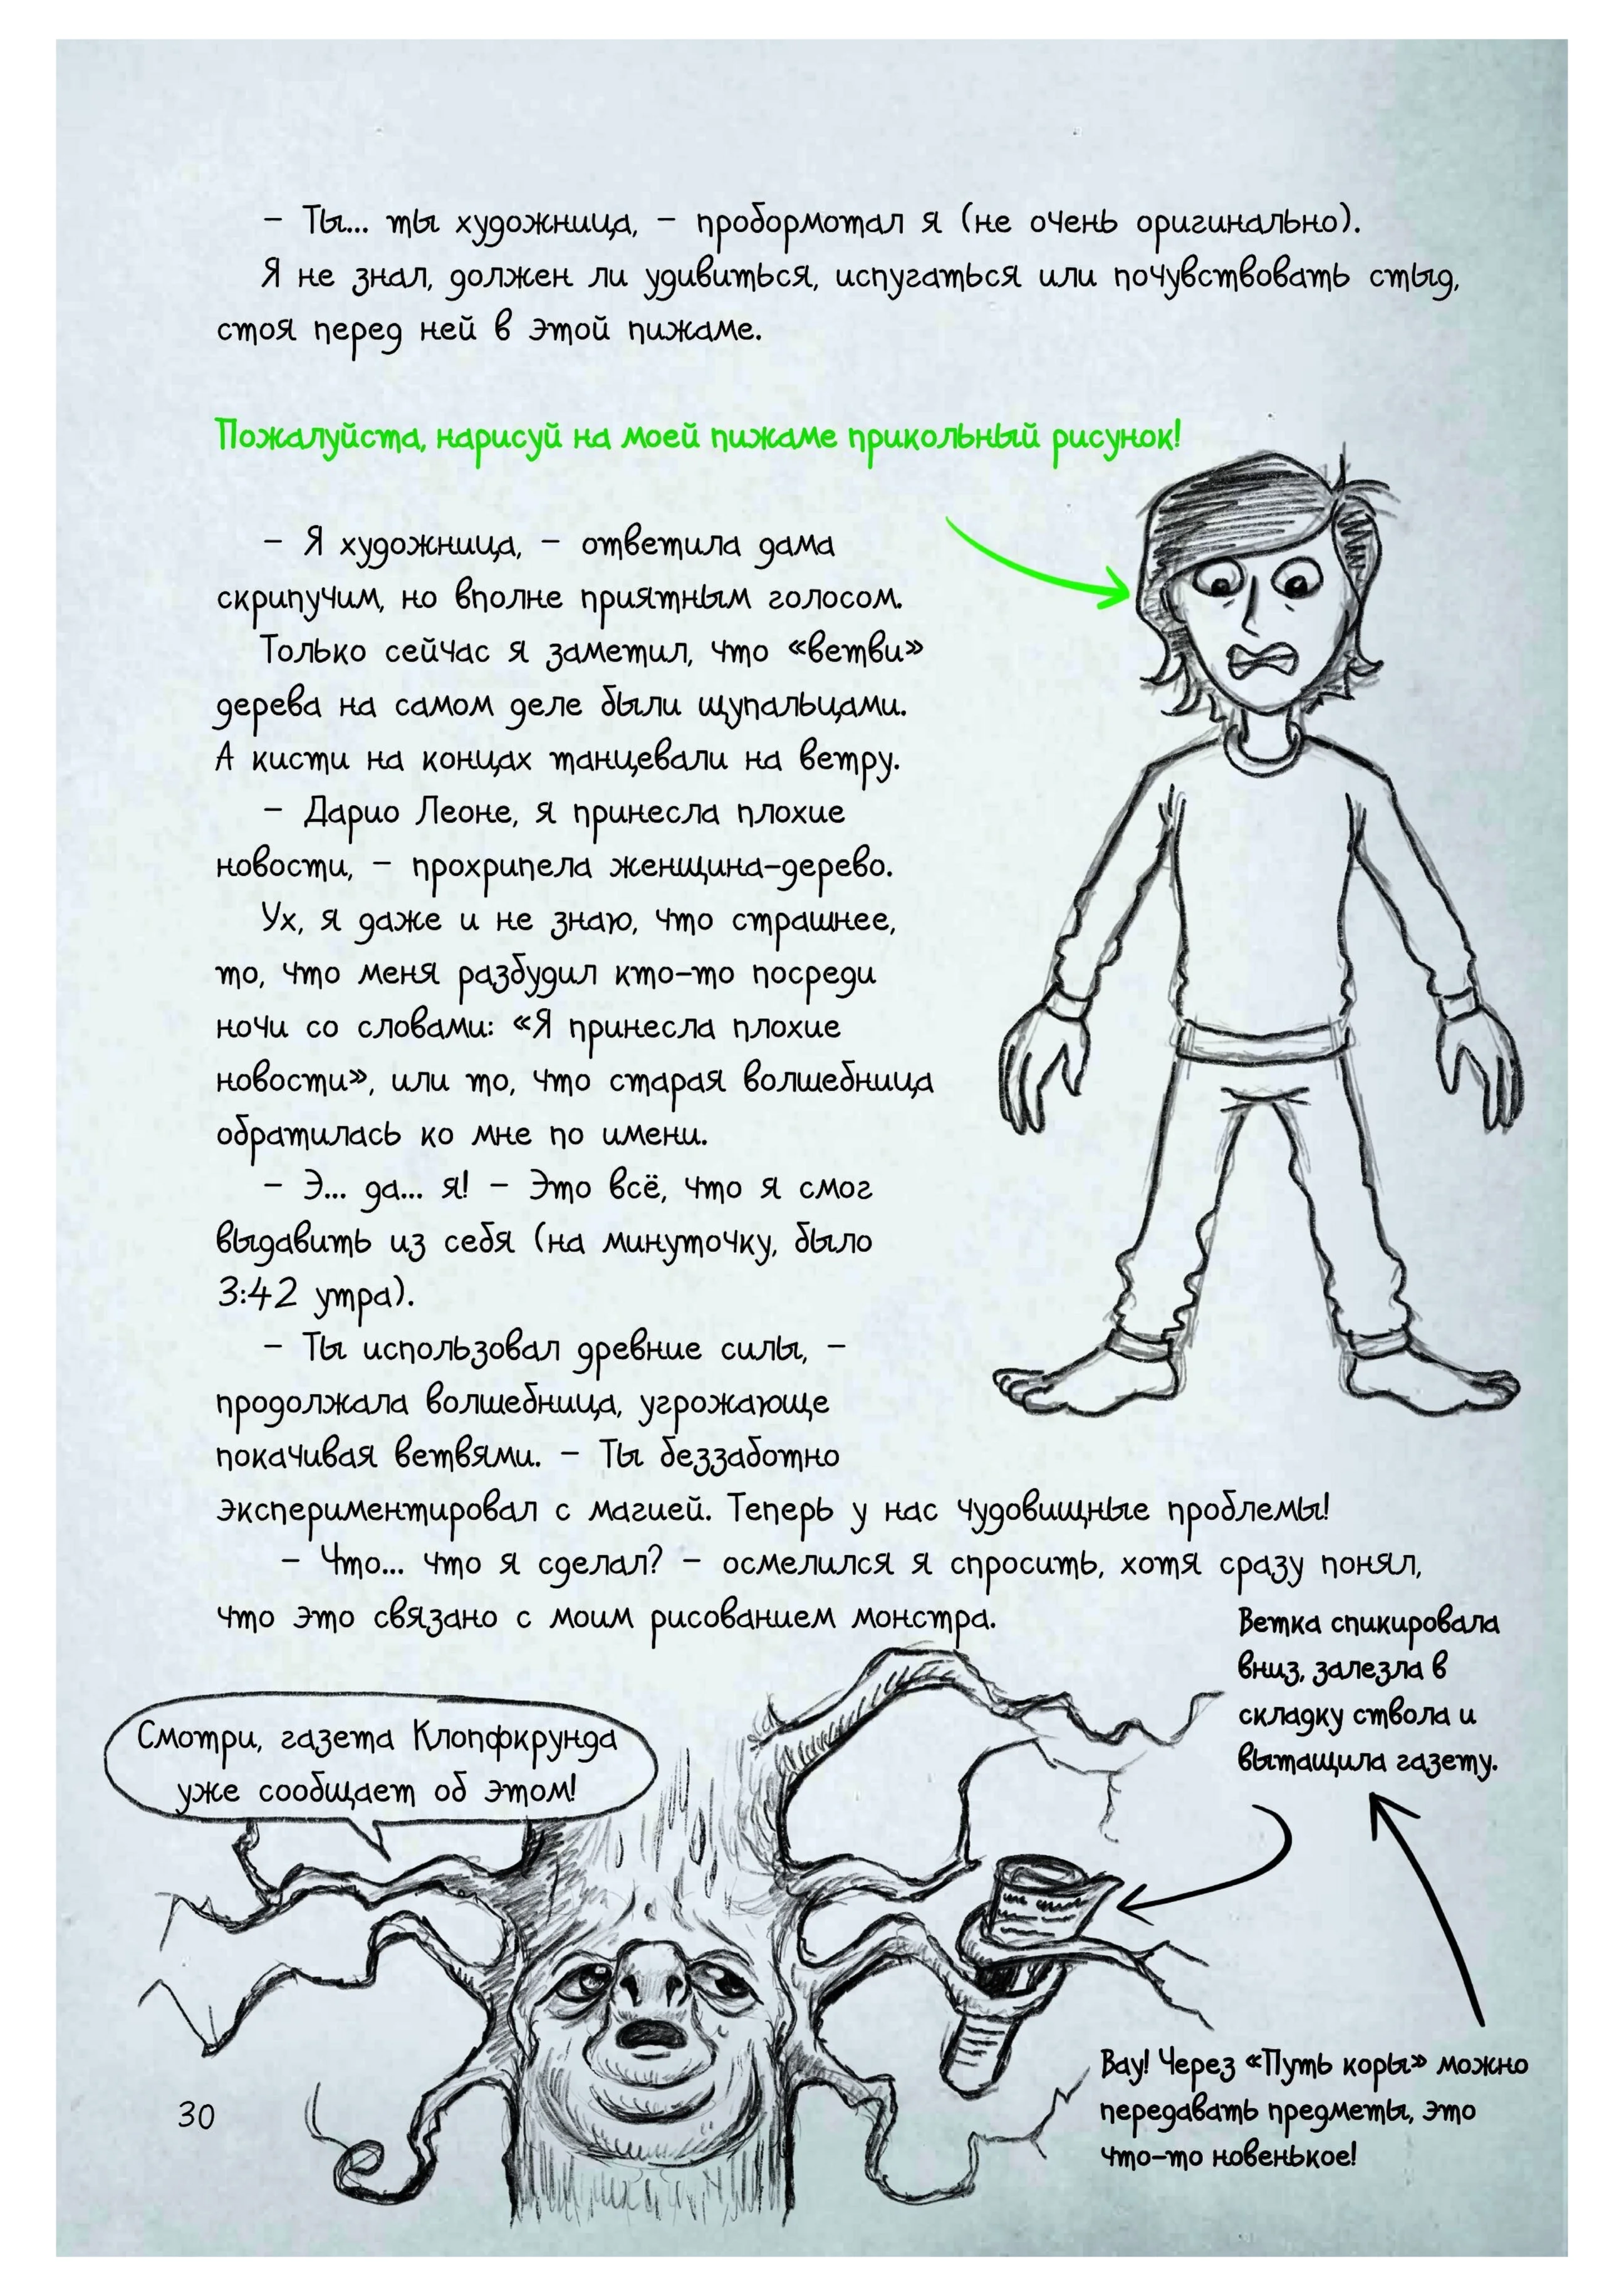 – Ты... ты художница, – пробормотал я (не очень оригинально).
Я не знал, должен ли удивиться, испугаться или почувствовать стыд,
стоя перед ней в этой пижаме.
Пожалуйста, нарисуй на моей пижаме прикольный рисунок!
– Я художница, – ответила дама
скрипучим, но вполне приятным голосом.
Только сейчас я заметил, что «ветви»
дерева на самом деле были щупальцами.
А кисти на концах танцевали на ветру.
– Дарио Леоне, я принесла плохие
новости, – прохрипела женщина-дерево.
Ух, я даже и не знаю, что страшнее,
то, что меня разбудил кто-то посреди
ночи со словами: «Я принесла плохие
новости», или то, что старая волшебница
обратилась ко мне по имени.
– Э... да... я! – Это всё, что я смог
выдавить из себя (на минуточку, было
3:42 утра).
– Ты использовал древние силы, –
продолжала волшебница, угрожающе
покачивая ветвями. – Ты беззаботно
экспериментировал с магией. Теперь у нас чудовищные проблемы!
– Что... что я сделал? – осмелился я спросить, хотя сразу понял,
что это связано с моим рисованием монстра.
Смотри, газета Клопфкрунда
уже сообщает об этом!
Ветка спикировала
вниз, залезла в
складку ствола и
вытащила газету.
Вау! Через «Путь коры» можно
передавать предметы, это
что-то новенькое!
30